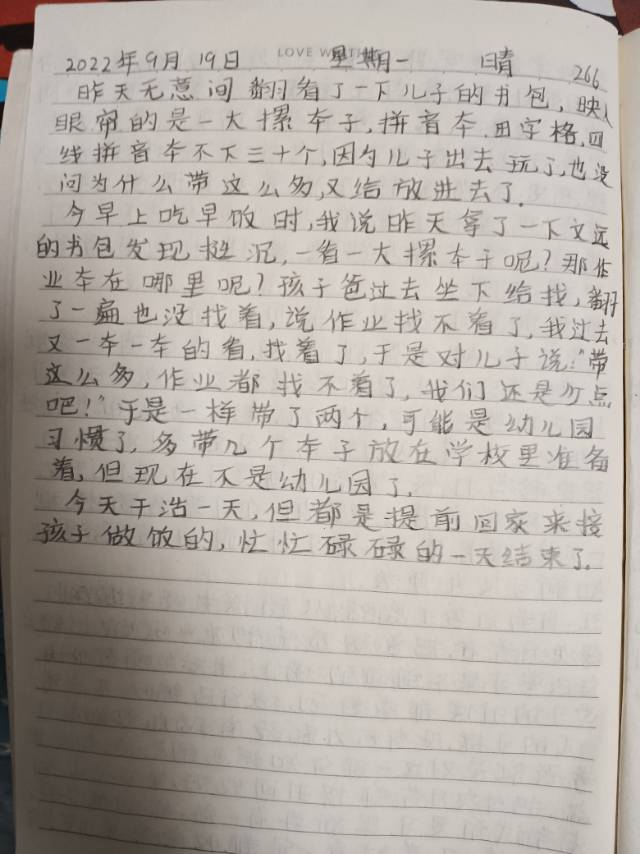 LOVE
2022年9月19日 星期一 晴 266
昨天无意间翻看了一下儿子的书包，映入
眼帘的是一大摞本子，拼音本、田字格、四
线拼音本不下三十个，因为儿子出去玩了，也没
问为什么带这么多，又给放进去了。
今早上吃早饭时，我说昨天拿了一下文远
的书包发现挺沉，一看一大摞本子呢？那作
业本在哪里呢？孩子爸过去坐下给找，翻
了一遍也没找着，说作业找不着了，我过去
又一本一本的看，找着了，于是对儿子说："带
这么多，作业都找不着了，我们还是少点
吧！"于是一样带了两个，可能是幼儿园
习惯了，多带几个本子放在学校里准备
着，但现在不是幼儿园了。
今天干活一天，但都是提前回家来接
孩子做饭的，忙忙碌碌的一天结束了。